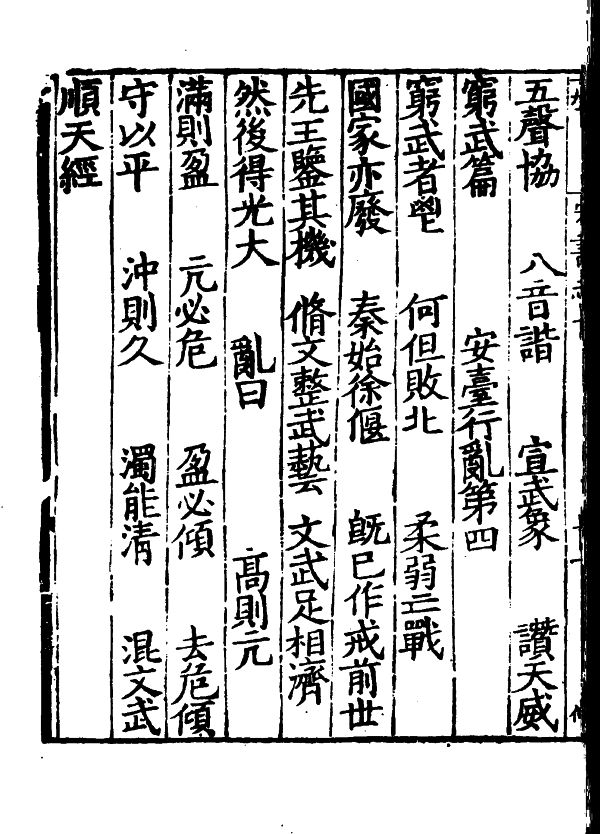 五聲協　八音諧　宣武象　讚天威
窮武篇　安臺行亂第四
窮武者喪　何但敗北　柔弱亡戰
國家亦廢　秦始徐偃　既已作戒前世
先王鑒其機　脩文整武藝　文武足相濟
然後得光大　亂曰　高則亢
滿則盈　亢必危　盈必傾　去危傾
守以平　沖則久　濁能清　混文武
順天經